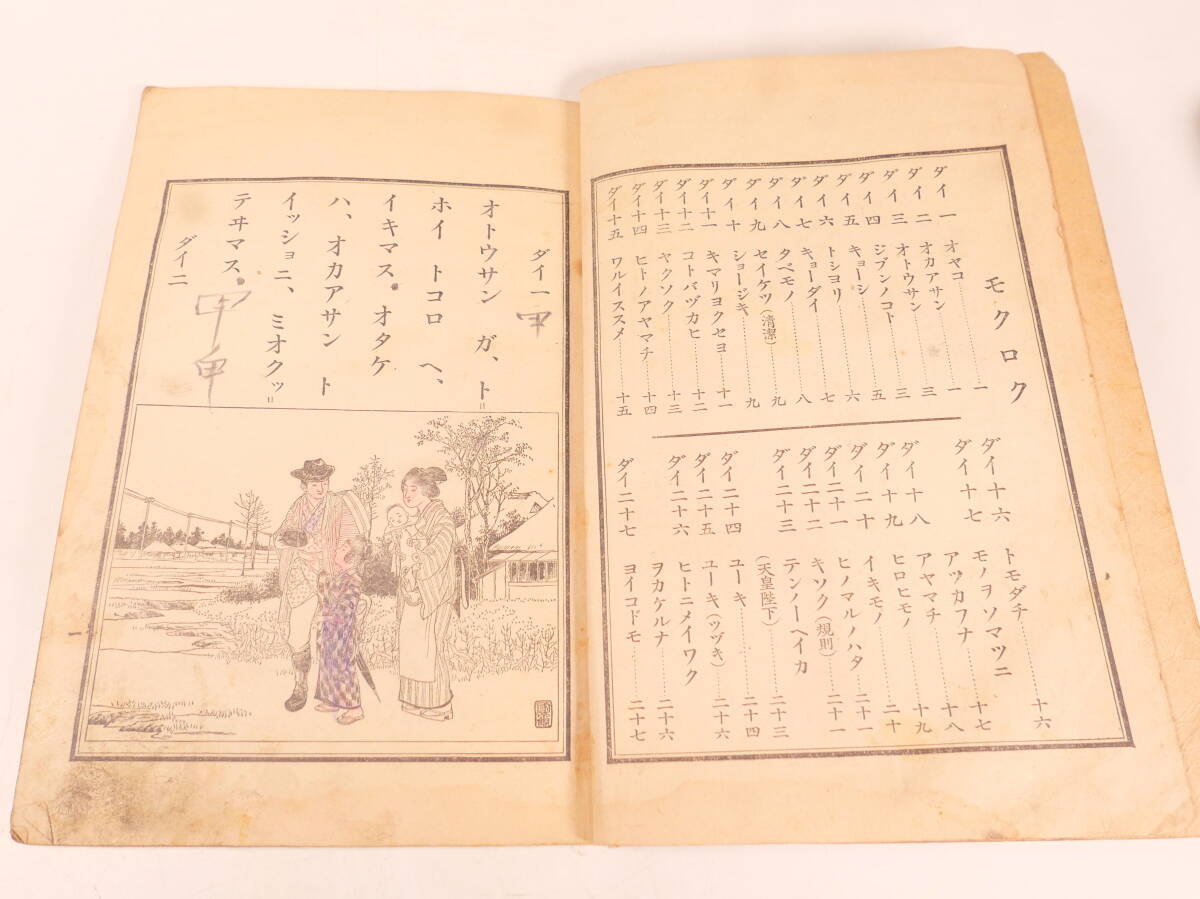 モクロク
ダイ一 オヤコ……一
ダイ二 オカアサン……一
ダイ三 オトウサン……三
ダイ四 ジブンノコト……三
ダイ五 キョーシ……五
ダイ六 トシヨリ……六
ダイ七 キョーダイ……七
ダイ八 タベモノ……八
ダイ九 セイケツ(清潔)……九
ダイ十 ショージキ……九
ダイ十一 キマリヨクセヨ……十一
ダイ十二 コトバヅカヒ……十二
ダイ十三 ヤクソク……十三
ダイ十四 ヒトノアヤマチ……十四
ダイ十五 ワルイススメ……十五
ダイ十六 トモダチ……十六
ダイ十七 モノヲソマツニ
アツカフナ……十七
ダイ十八 アヤマチ……十八
ダイ十九 ヒロヒモノ……十九
ダイ二十 イキモノ……二十
ダイ二十一 ヒノマルノハタ……二十一
ダイ二十二 キソク(規則)……二十一
ダイ二十三 テンノーヘイカ
(天皇陛下)……二十三
ダイ二十四 ユーキ……二十四
ダイ二十五 ユーキ(ツヅキ)……二十六
ダイ二十六 ヒトニメイワク
ヲカケルナ……二十六
ダイ二十七 ヨイコドモ……二十七
ダイ一 甲
オトウサン ガ、ト゠
ホイ トコロ ヘ、
イキマス。オタケ
ハ、オカアサン ト
イッショニ、ミオクッ゠
テヰマス。甲
ダイ二
一